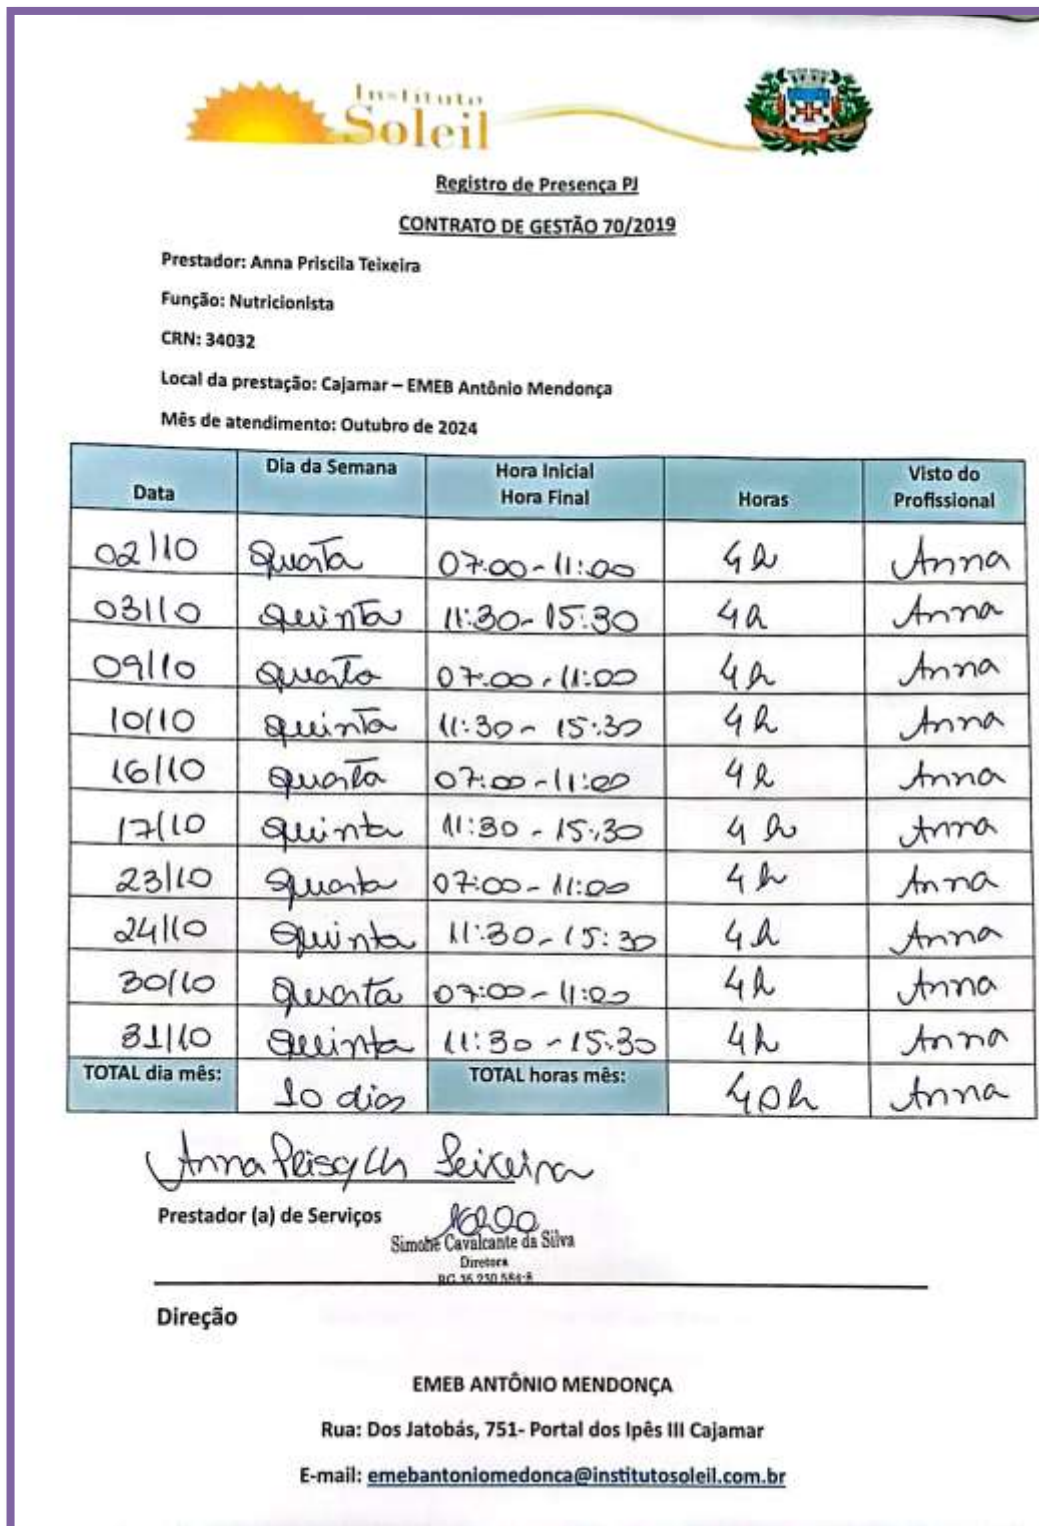 Instituto
Soleil
Registro de Presença PJ
CONTRATO DE GESTÃO 70/2019
Prestador: Anna Priscila Teixeira
Função: Nutricionista
CRN: 34032
Local da prestação: Cajamar – EMEB Antônio Mendonça
Mês de atendimento: Outubro de 2024
Data Dia da Semana Hora Inicial Hora Final Horas Visto do Profissional
02/10 Quarta 07:00-11:00 4h Anna
03/10 Quinta 11:30-15:30 4h Anna
09/10 Quarta 07:00-11:00 4h Anna
10/10 Quinta 11:30-15:30 4h Anna
16/10 Quarta 07:00-11:00 4h Anna
17/10 Quinta 11:30-15:30 4h Anna
23/10 Quarta 07:00-11:00 4h Anna
24/10 Quinta 11:30-15:30 4h Anna
30/10 Quarta 07:00-11:00 4h Anna
31/10 Quinta 11:30-15:30 4h Anna
TOTAL dia mês: 10 dias TOTAL horas mês: 40h Anna
Anna Teixeira
Prestador (a) de Serviços
Simone Cavalcante da Silva
Diretora
Direção
EMEB ANTÔNIO MENDONÇA
Rua: Dos Jatobás, 751- Portal dos Ipês III Cajamar
E-mail: emebantoniomedonca@institutosoleil.com.br